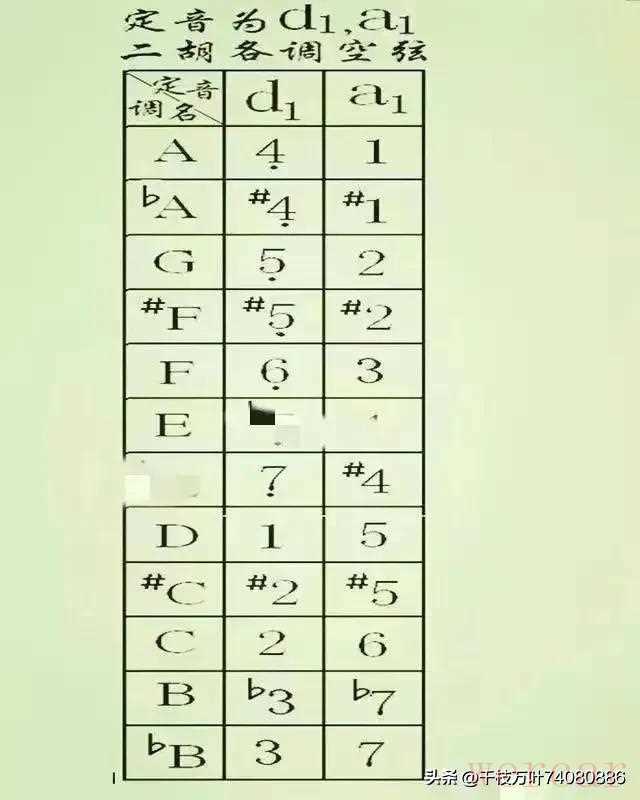 定音为d1,a1
二胡各调空弦
定音 调名 d1 a1
A 4̣ 1
♭A #4̣ #1
G 5̣ 2
#F #5̣ #2
F 6̣ 3
E
7̣ #4
D 1 5
#C #2 #5
C 2 6
B ♭3 ♭7
♭B 3 7
werear
头条 @千枝万叶74080886